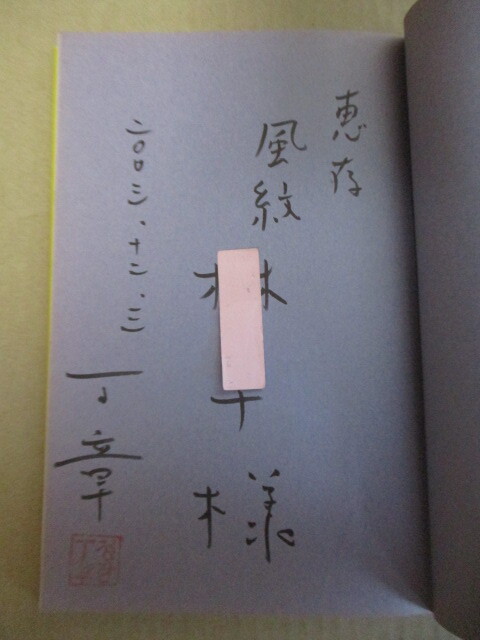 恵存
風紋
様
二〇〇三、十二、三
丁章